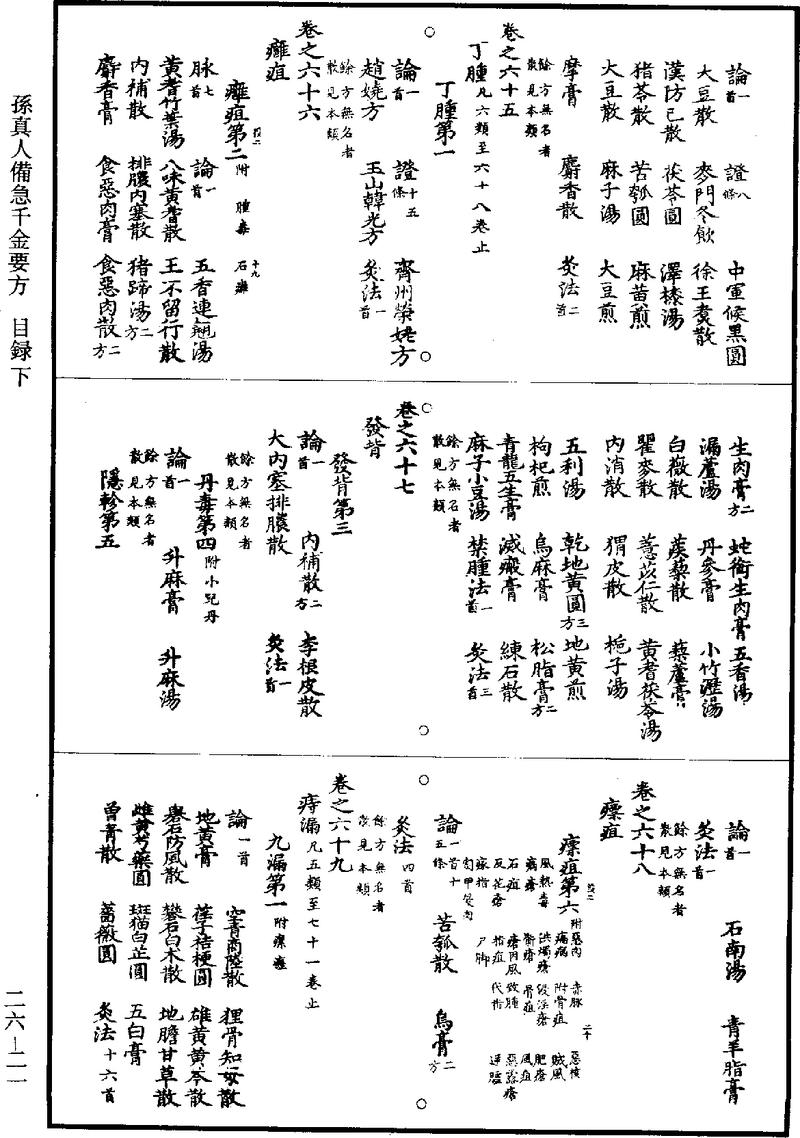 孫真人備急千金要方　目録下
二六—二一
論一首　證八條　中軍候黑圓
大豆散　麥門冬飲　徐王煑散
漢防已散　茯苓圓　澤㯶湯
猪苓散　苦瓠圓　麻黃煎
大豆散　麻子湯　大豆煎
摩膏　麝香散　灸法二首
餘方無名者散見本類
卷之六十五
丁腫凡六類至六十八卷止
丁腫第一
論一首　證十五條　齊州榮姥方
趙嬈方　玉山韓光方　灸法一首
餘方無名者散見本類
卷之六十六
癰疽
癰疽第二　附　腫毒　石癰
脉七首　論一首　五香連翹湯
黃耆竹葉湯　八味黃耆散　王不留行散
內補散　排膿內塞散　猪蹄湯二方
麝香膏　食惡肉膏　食惡肉散二方
生肉膏二方　蛇銜生肉膏　五香湯
漏蘆湯　丹參膏　小竹瀝湯
白薇散　蒺䔧散　藜蘆膏
瞿麥散　薏苡仁散　黃耆茯苓湯
內消散　猬皮散　梔子湯
五利湯　乾地黃圓三方　地黃煎
枸杞煎　烏麻膏　松脂膏二方
青龍五生膏　滅瘢膏　練石散
麻子小豆湯　禁腫法一首　灸法三首
餘方無名者散見本類
卷之六十七
發背
發背第三
論一首　內補散二方　李根皮散
大內塞排膿散　灸法一首
餘方無名者散見本類
丹毒第四　附小兒丹
論一首　升麻膏　升麻湯
餘方無名者散見本類
隱軫第五
論一首　石南湯　青羊脂膏
灸法一首
餘方無名者散見本類
卷之六十八
瘭疽
瘭疽第六　附惡肉　赤脉　惡核
風熱毒　瘑病　附骨疽　賊風
瘑瘡　洪燭瘡　浸淫瘡　肥瘡
石疽　骨疽　風疽
反花瘡　瘡因風致腫　惡露瘡
嫁指　代指　逆臚
甸甲侵肉　尸脚
論一首十五條　苦瓠散　烏膏二方
灸法四首
餘方無名者散見本類
卷之六十九
痔漏凡五類至七十一卷止
九漏第一　附瘰癧
論一首　空青商陸散　狸骨知母散
地黃膏　葶子桔梗圓　雄黃黃芩散
礜石防風散　礬石白朮散　地膽甘草散
雌黃芍藥圓　斑猫白芷圓　五白膏
曾青散　薔薇圓　灸法十六首